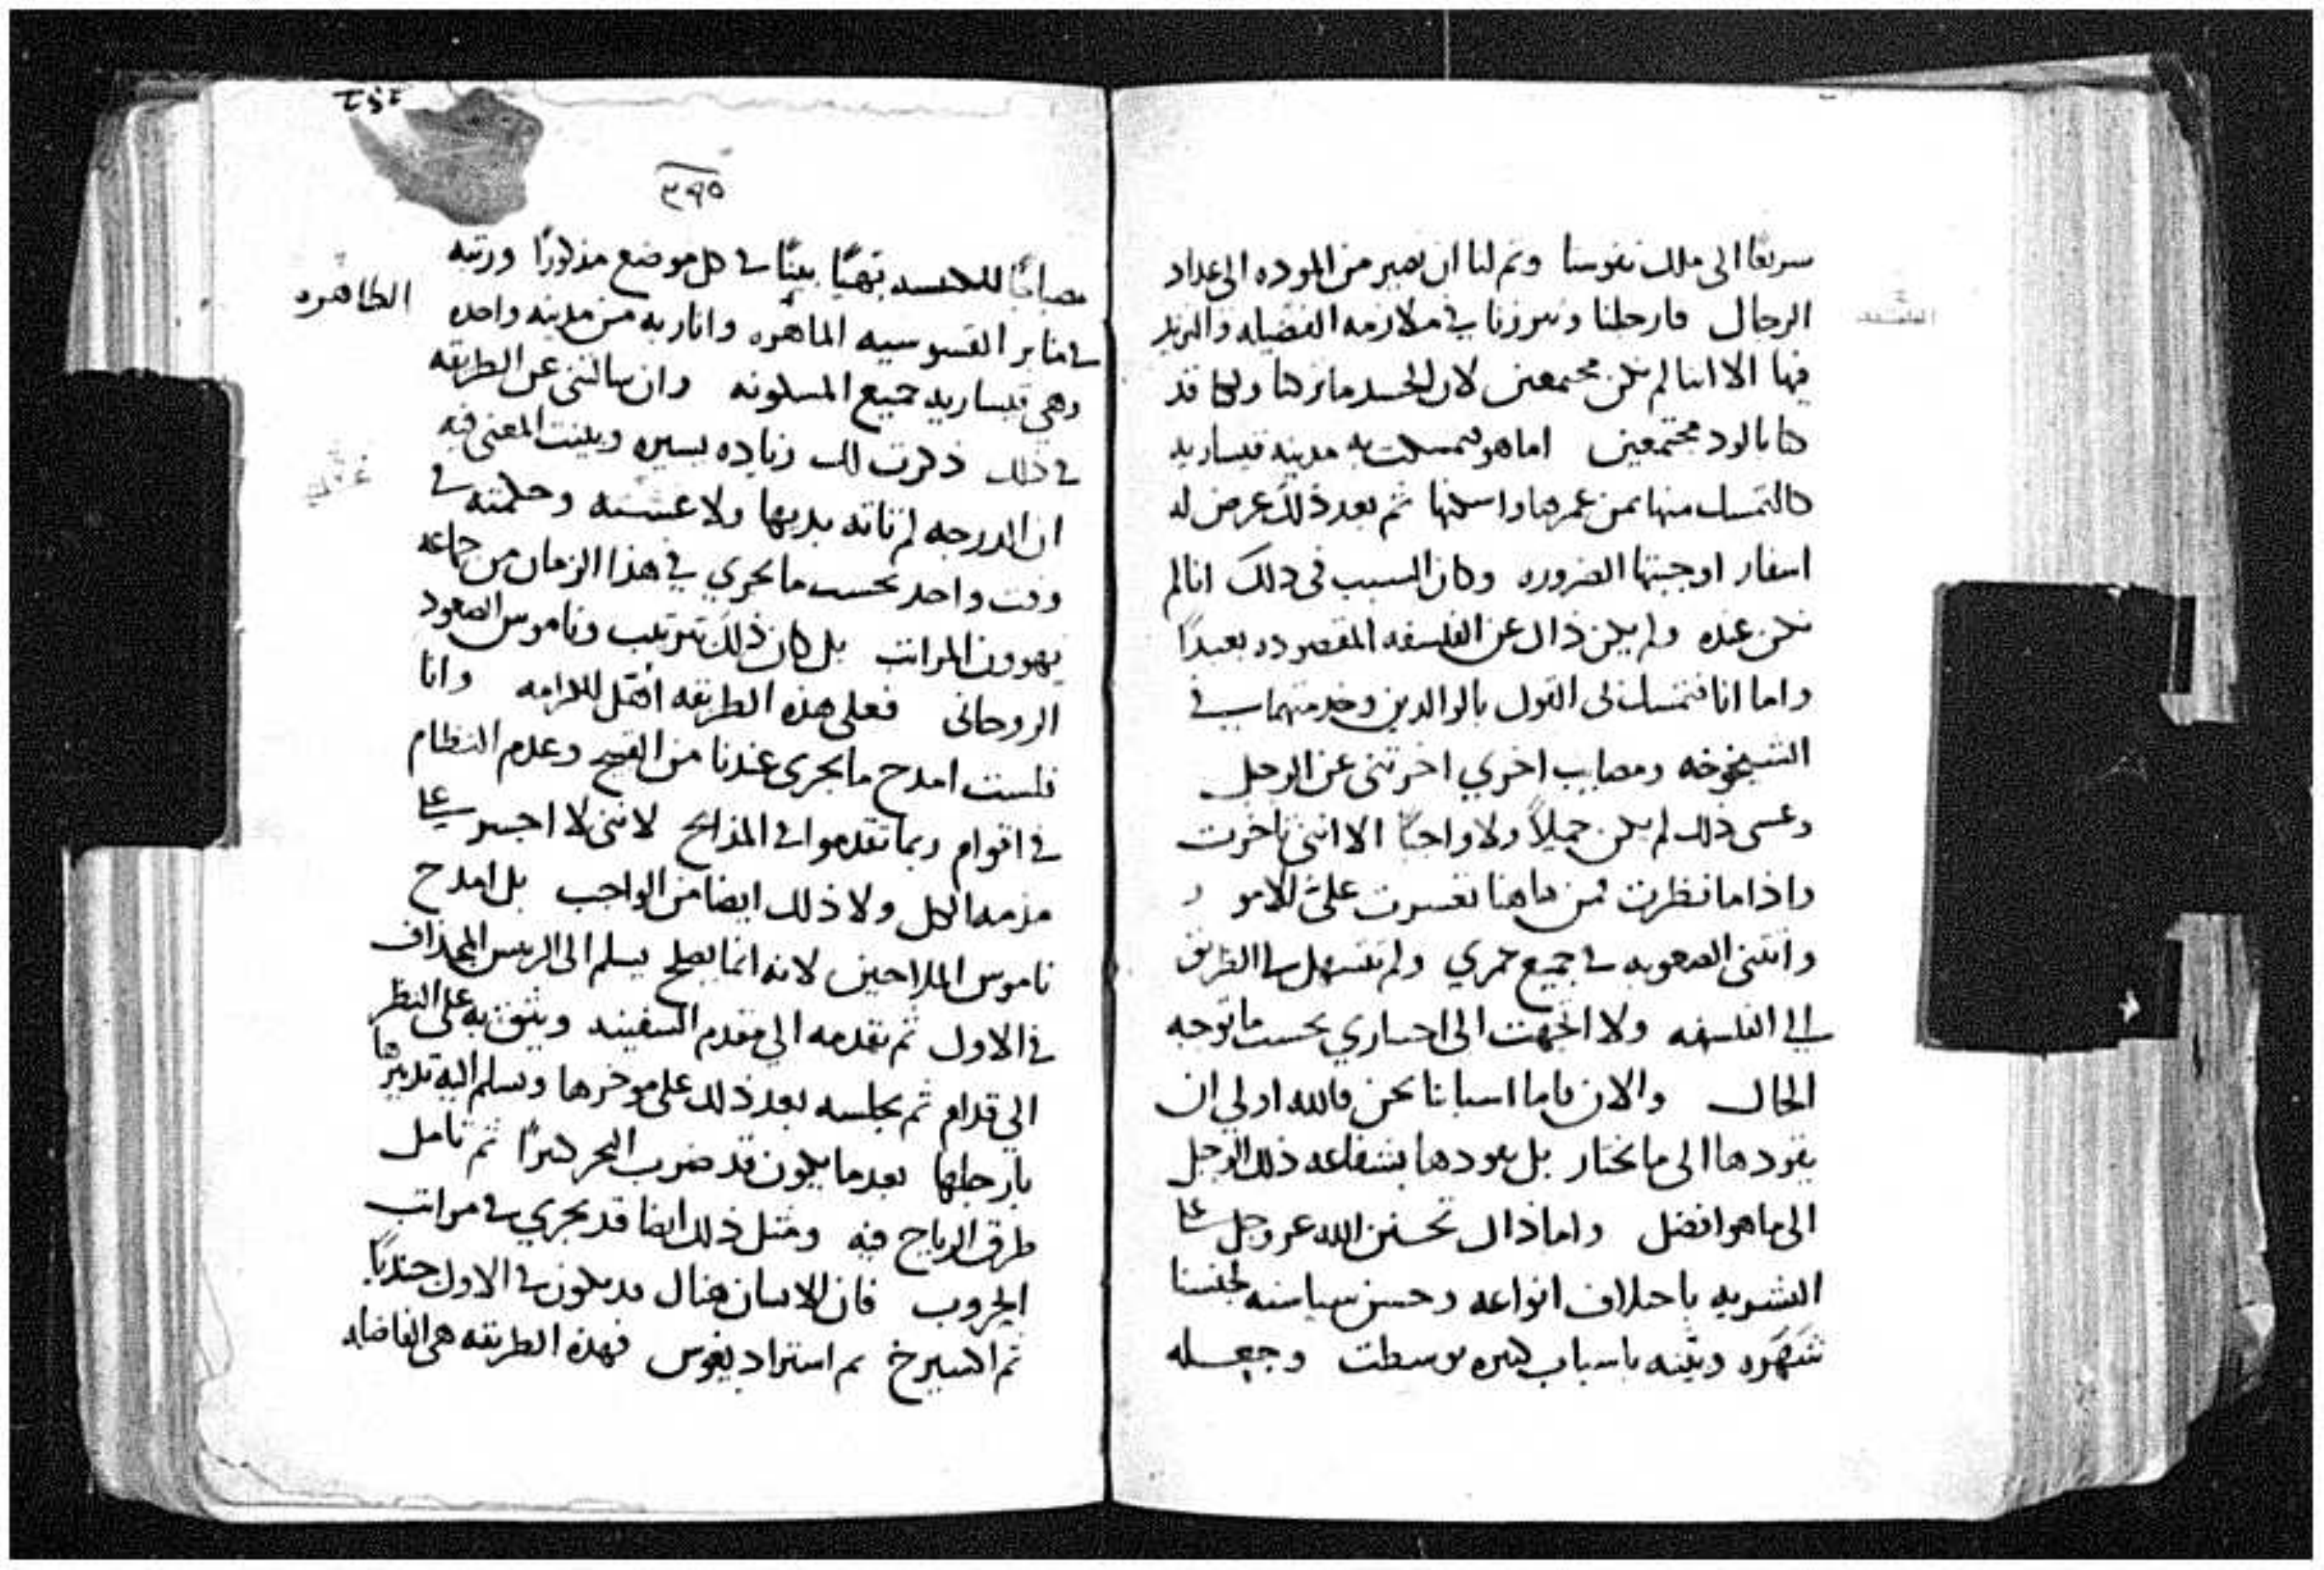 سريعا الى ملك نفوسنا وتم لنا ان نصير من الموده الى عداد
الرجال فارحلنا وبرزنا في ملازمه الفضيله والتزيد
فيها الا اننا لم نكن مجتمعين لان الجسد ما تركنا ولكنا قد
كنا بالود مجتمعين اما هو فتمسكت به مدينه قيساريه
كالتمسك منها بمن عمرها واسكنها ثم بعد ذلك عرض له
اسفار اوجبتها الضروره وكان السبب في ذلك انا لم
نكن عنده ولم يكن ذاك عن الفلسفه المقصوده بعيدًا
واما انا فتمسك لى القول بالوالدين وخدمتهما في
الشيخوخه ومصايب اخري اخرتني عن الرجل
وعسى ذلك لم يكن جميلاً ولا واجبًا الا انني تاخرت
واذا ما نظرت فمن هاهنا تعسرت علىّ الامور
واتتني الصعوبه في جميع عمري ولم تتسهل لي الطريق
الى الفلسفه ولا اتجهت الى اختياري بحسب ما توجه
الحال والان فاما اسبابنا نحن فالله اولي ان
يقودها الى ما يختار بل يقودها بشفاعه ذلك الرجل
الى ما هو افضل واما ذاك تحنن الله عز وجل على
البشريه باختلاف انواعه وحسن سياسته لجنسنا
شهره وبينه باسباب كثيره توسطت وجعله
٣٩٥
مصباحًا للكنيسه بهيًا بينًا في كل موضع مذكورًا ورتبه
في منابر القسوسيه الماهره وانار به من مدينه واحده
الطاهره
وهي قيساريه جميع المسكونه وان سالتني عن الطريقه
في ذلك ذكرت لك زياده يسيره وبينت المعنى فيه
ان الدرجه لم تاته بديها ولا غسته وحكمته في
وقت واحد بحسب ما يجري في هذا الزمان من جماعه
يهوون المراتب بل كان ذلك بترتيب وناموس الصعود
الروحاني فعلى هذه الطريقه اهّل للكرامه وانا
فلست امدح ما يجرى عندنا من القبح وعدم النظام
في اقوام ربما تقدموا الى المذابح لانني لا اجسر على
مذمه الكل ولا ذلك ايضا من الواجب بل امدح
ناموس الملاحين لانه انما يصلح يسلم الى الريس المجذاف
في الاول ثم يقدمه الى مقدم السفينه ويثق به على النظر
الي قدام ثم يجلسه بعد ذلك على موخرها ويسلم اليه تدبيرها
بارجلها بعد ما يكون قد ضرب البحر كثيرًا ثم تامل
طرق الرياح فيه ومثل ذلك ايضا قد يجري في مراتب
الحروب فان الانسان هناك قد يكون في الاول جنديًا
ثم اسبرخ ثم استراديغوس فهذه الطريقه هى الفاضله